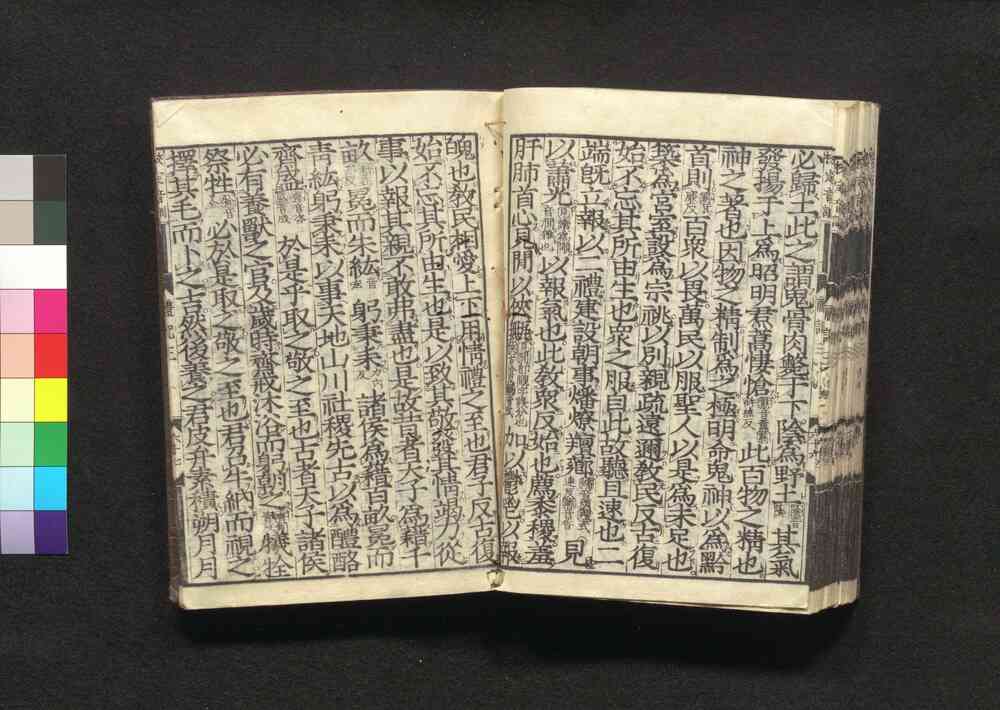 必歸土此之謂鬼骨肉斃于下陰爲野土其氣
發揚于上爲昭明焄蒿悽愴此百物之精也
神之著也因物之精制爲之極明命鬼神以爲黔
首則百衆以畏萬民以服聖人以是爲未足也
築爲宮室設爲宗祧以別親疏遠邇敎民反古復
始不忘其所由生也衆之服自此故聽且速也二
端旣立報以二禮建設朝事燔燎羶薌見
以蕭光以報氣也此敎衆反始也薦黍稷羞
肝肺首心見間以俠甒加以鬱鬯以報
魄也敎民相愛上下用情禮之至也君子反古復
始不忘其所由生也是以致其敬發其情竭力從
事以報其親不敢弗盡也是故昔者天子爲藉千
畝冕而朱紘躬秉耒諸侯爲藉百畝冕而
青紘躬秉耒以事天地山川社稷先古以爲醴酪
齊盛於是乎取之敬之至也古者天子諸侯
必有養獸之官及歲時齋戒沐浴而躬朝之犧牷
祭牲必於是取之敬之至也君召牛納而視之
擇其毛而卜之吉然後養之君皮弁素積朔月月